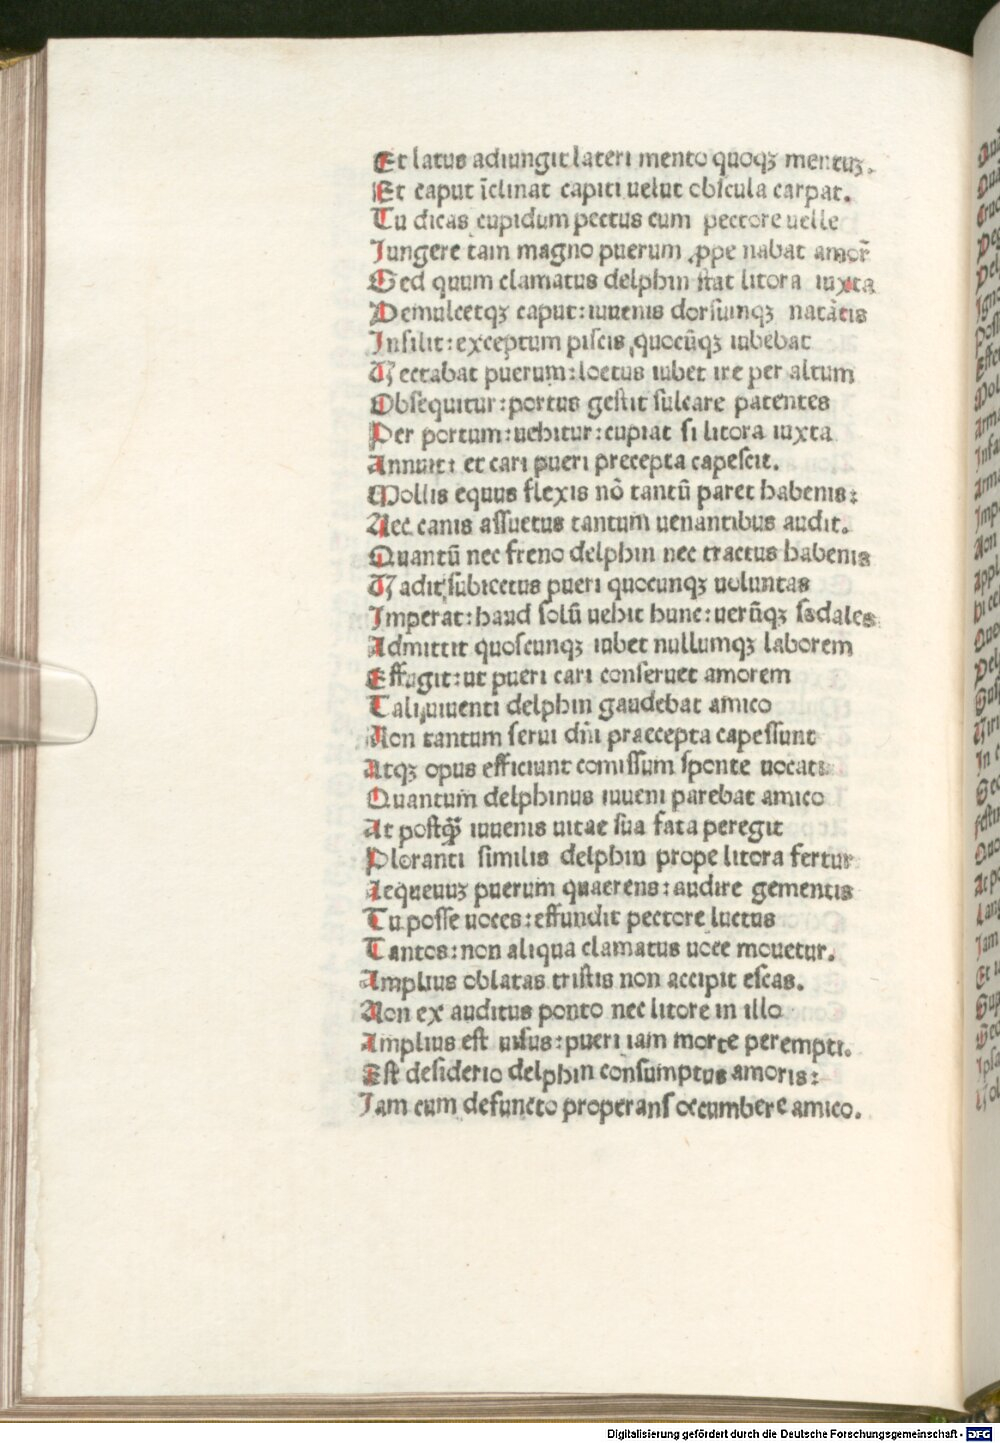 Et latus adiungit lateri mento quoqꝫ mentuꝫ.
Et caput īclinat capiti uelut obscula carpat.
Tu dicas cupidum pectus cum pectore uelle
Jungere tam magno puerum ꝓpe nabat amor̃
Sed quum clamatus delphin stat litora iuxta
Demulcetqꝫ caput: iuuenis dorsumqꝫ natātis
Insilit: exceptum piscis quocūqꝫ iubebat
Vectabat puerum: loetus iubet ire per altum
Obsequitur: portus gestit sulcare patentes
Per portum: uebitur: cupiat si litora iuxta
Annuit: et cari pueri precepta capescit.
Mollis equus flexis nō tantū paret habenis:
Nec canis assuetus tantum uenantibus audit.
Quantū nec freno delphin nec tractus habenis
Vadit subicetus pueri quocunqꝫ uoluntas
Imperat: haud solū uehit hunc: uerūqꝫ sodales
Admittit quoscunqꝫ iubet nullumqꝫ laborem
Effugit: ut pueri cari conseruet amorem
Tali uiuenti delphin gaudebat amico
Non tantum serui dn̄i praecepta capessiunt
Atqꝫ opus efficiunt comissum sponte uocati
Quantum delphinus iuueni parebat amico
At postꝙ̃ iuuenis uitae sua fata peregit
Ploranti similis delphin prope litora fertur
Aequeuuꝫ puerum quaerens: audire gementis
Tu posse uoces: effundit pectore luctus
Tantos: non aliqua clamatus uoce mouetur.
Amplius oblatas tristis non accipit escas.
Non ex auditus ponto nec litore in illo
Amplius est uisus: pueri iam morte perempti.
Est desiderio delphin consumptus amoris:
Jam cum defuncto properans occumbere amico.
Digitalisierung gefördert durch die Deutsche Forschungsgemeinschaft - DFG